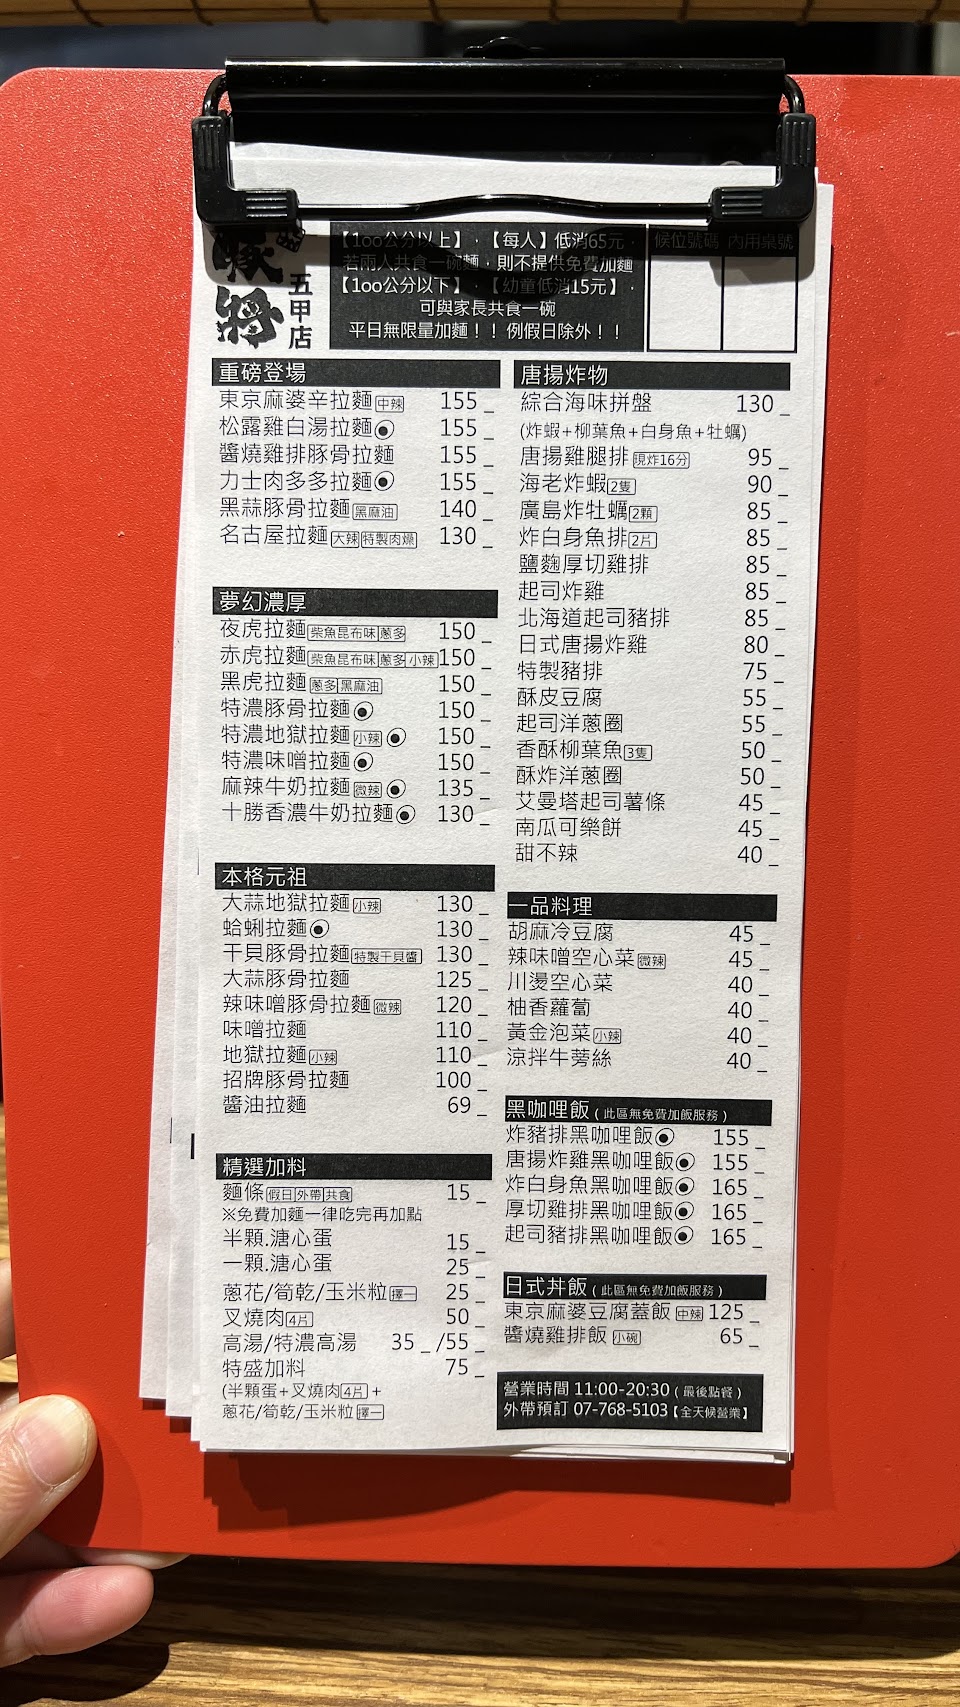 豚將
五甲店
【100公分以上】，【每人】低消65元，
若兩人共食一碗麵，則不提供免費加麵
【100公分以下】，【幼童低消15元】，
可與家長共食一碗
平日無限量加麵！！例假日除外！！
候位號碼 內用桌號
重磅登場
東京麻婆辛拉麵 中辣 155 _
松露雞白湯拉麵 155 _
醬燒雞排豚骨拉麵 155 _
力士肉多多拉麵 155 _
黑蒜豚骨拉麵 黑麻油 140 _
名古屋拉麵 大辣 特製肉燥 130 _
夢幻濃厚
夜虎拉麵 柴魚昆布味 蔥多 150 _
赤虎拉麵 柴魚昆布味 蔥多 小辣 150 _
黑虎拉麵 蔥多 黑麻油 150 _
特濃豚骨拉麵 150 _
特濃地獄拉麵 小辣 150 _
特濃味噌拉麵 150 _
麻辣牛奶拉麵 微辣 135 _
十勝香濃牛奶拉麵 130 _
本格元祖
大蒜地獄拉麵 小辣 130 _
蛤蜊拉麵 130 _
干貝豚骨拉麵 特製干貝醬 130 _
大蒜豚骨拉麵 125 _
辣味噌豚骨拉麵 微辣 120 _
味噌拉麵 110 _
地獄拉麵 小辣 110 _
招牌豚骨拉麵 100 _
醬油拉麵 69 _
精選加料
麵條 假日 外帶 共食 15 _
※免費加麵一律吃完再加點
半顆.溏心蛋 15 _
一顆.溏心蛋 25 _
蔥花/筍乾/玉米粒 擇一 25 _
叉燒肉 4片 50 _
高湯/特濃高湯 35 _ /55 _
特盛加料 75 _
(半顆蛋+叉燒肉 4片 +
蔥花/筍乾/玉米粒 擇一
唐揚炸物
綜合海味拼盤 130 _
(炸蝦+柳葉魚+白身魚+牡蠣)
唐揚雞腿排 現炸16分 95 _
海老炸蝦 2隻 90 _
廣島炸牡蠣 2顆 85 _
炸白身魚排 2片 85 _
鹽麴厚切雞排 85 _
起司炸雞 85 _
北海道起司豬排 85 _
日式唐揚炸雞 80 _
特製豬排 75 _
酥皮豆腐 55 _
起司洋蔥圈 55 _
香酥柳葉魚 3隻 50 _
酥炸洋蔥圈 50 _
艾曼塔起司薯條 45 _
南瓜可樂餅 45 _
甜不辣 40 _
一品料理
胡麻冷豆腐 45 _
辣味噌空心菜 微辣 45 _
川燙空心菜 40 _
柚香蘿蔔 40 _
黃金泡菜 小辣 40 _
涼拌牛蒡絲 40 _
黑咖哩飯 ( 此區無免費加飯服務 )
炸豬排黑咖哩飯 155 _
唐揚炸雞黑咖哩飯 155 _
炸白身魚黑咖哩飯 165 _
厚切雞排黑咖哩飯 165 _
起司豬排黑咖哩飯 165 _
日式丼飯 ( 此區無免費加飯服務 )
東京麻婆豆腐蓋飯 中辣 125 _
醬燒雞排飯 小碗 65 _
營業時間 11:00-20:30 ( 最後點餐 )
外帶預訂 07-768-5103【全天候營業】